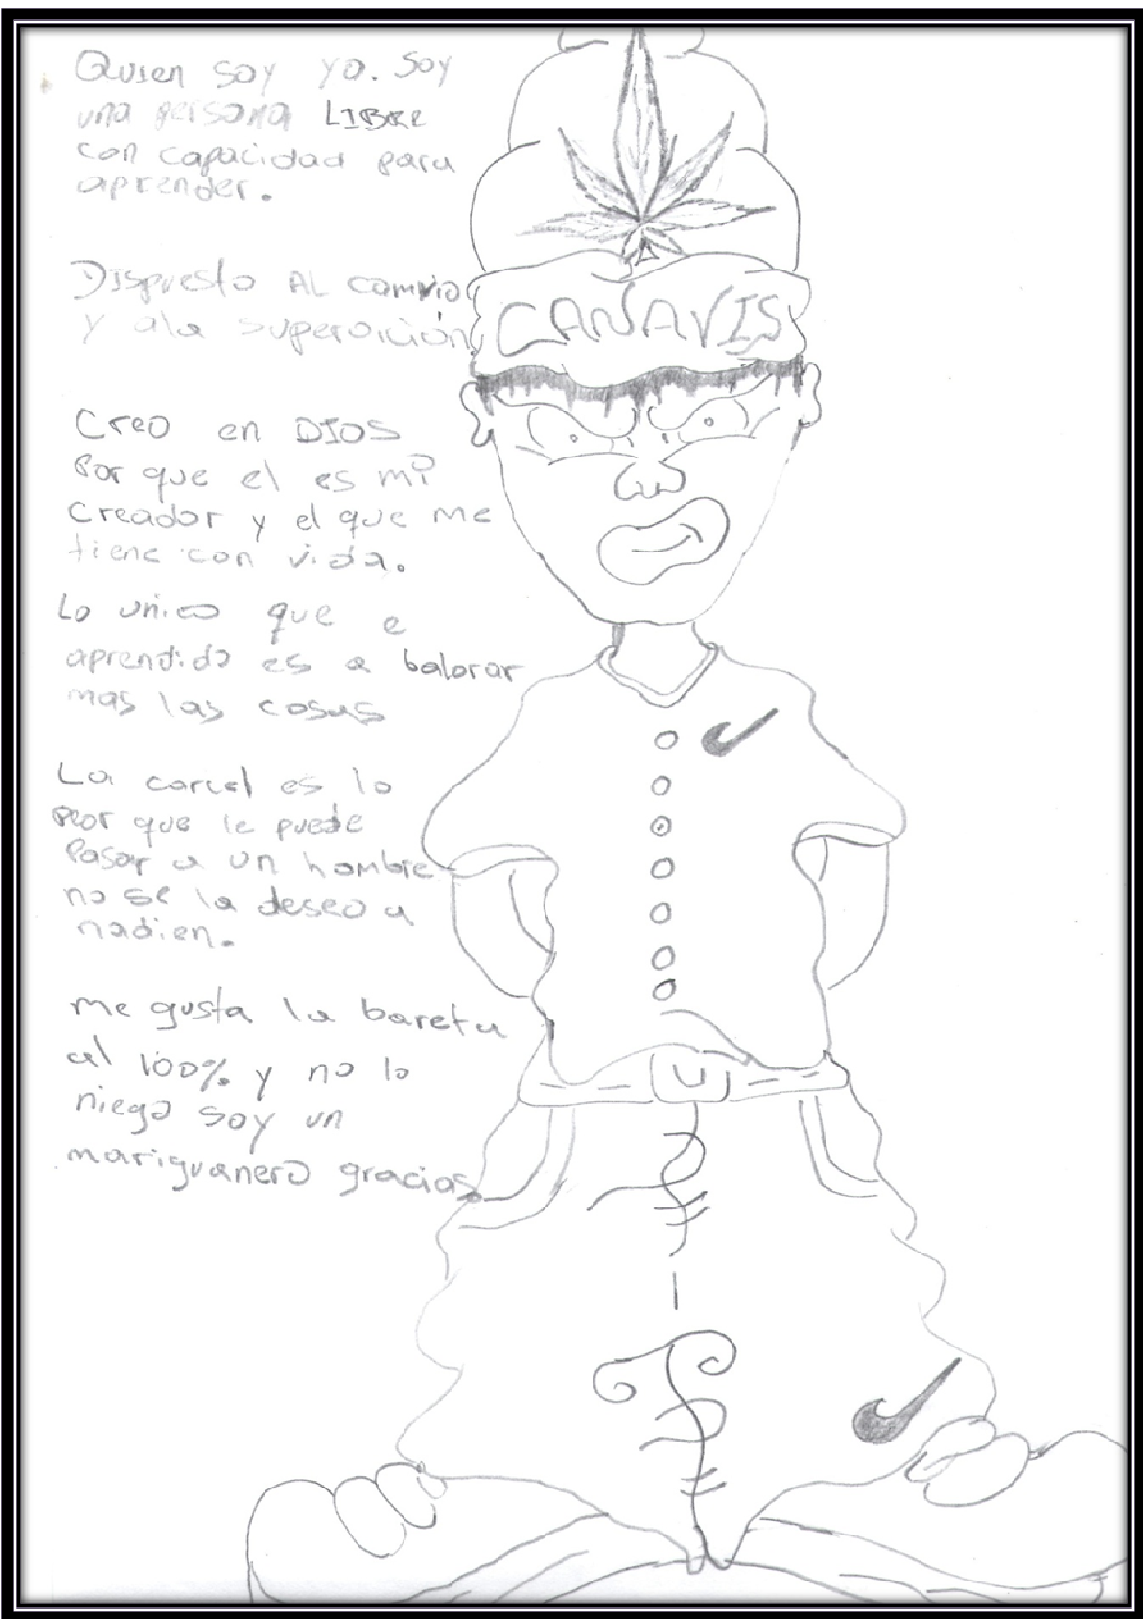 Quien soy yo. Soy
una persona LIBRE
con capacidad para
aprender.
Dispuesto AL camvio
y ala superaición
CANAVIS
Creo en DIOS
Por que el es mi
creador y el que me
tiene con vida.
Lo unico que e
aprendido es a balorar
mas las cosas
La carcel es lo
peor que le puede
Pasar a un hombre
no se la deseo a
nadien.
me gusta la bareta
al 100% y no lo
niego soy un
mariguanero gracias.